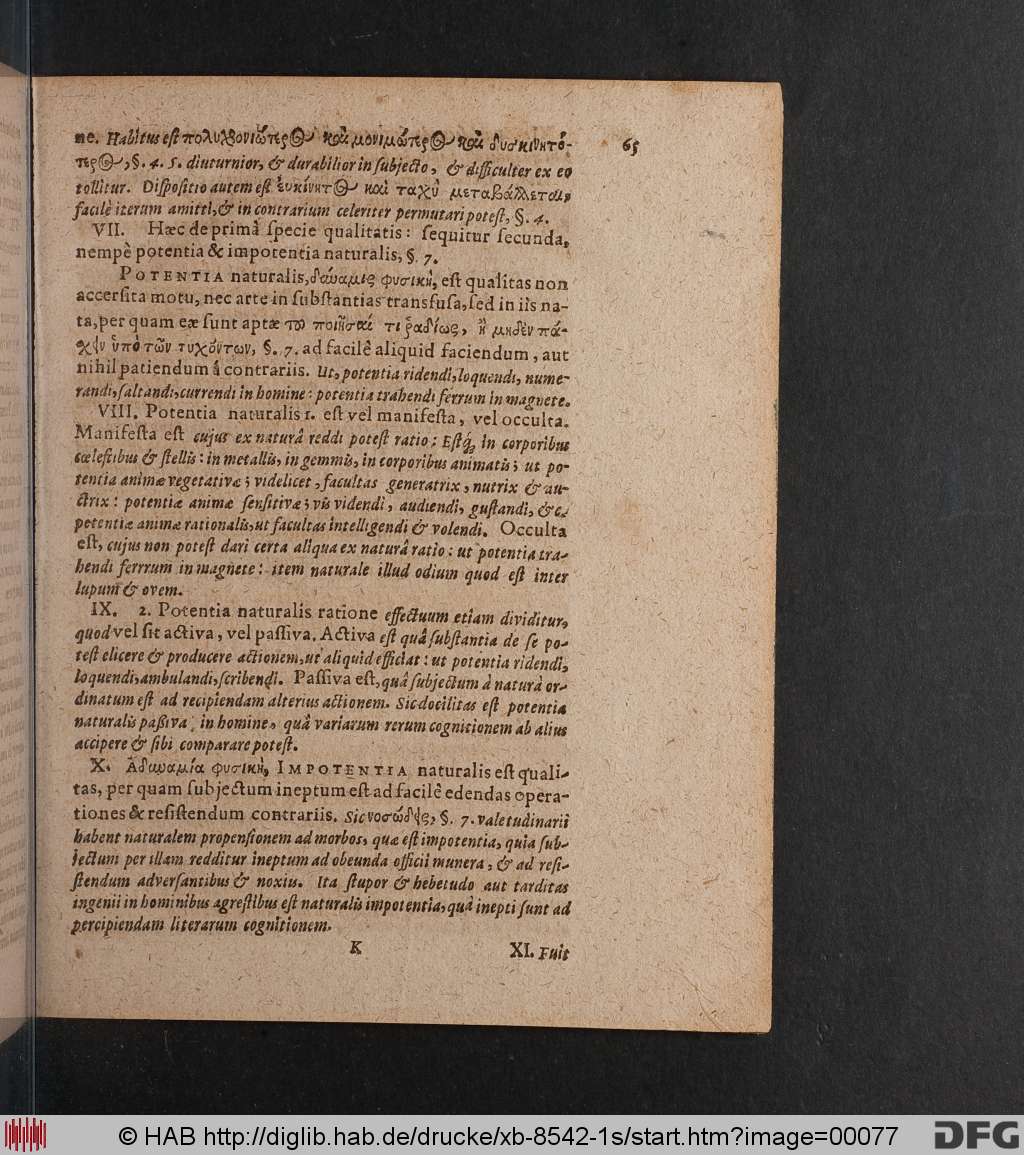 ne. Habitus est πολυχρονιώτερος καὶ μονιμώτερος καὶ δυσκινητό-
τερος, §. 4. 5. diuturnior, & durabilior in subjecto, & difficulter ex eo
tollitur. Dispositio autem est ἐυκίνητος καὶ ταχὺ μεταβάλλεται,
facilè iterum amitti, & in contrarium celeriter permutari potest, §. 4.
65
VII. Hæc de primâ specie qualitatis: sequitur secunda,
nempè potentia & impotentia naturalis, §. 7.
POTENTIA naturalis, δύναμις φυσικὴ, est qualitas non
accersita motu, nec arte in substantias transfusa, sed in iis na-
ta, per quam eæ sunt aptæ τοῦ ποιῆσαί τι ῥαδίως, ἢ μηδὲν πά-
χειν ὑπὸ τῶν τυχόντων, §. 7. ad facilê aliquid faciendum, aut
nihil patiendum á contrariis. Ut, potentia ridendi, loquendi, nume-
randi, saltandi, currendi in homine: potentia trahendi ferrum in magnete.
VIII. Potentia naturalis 1. est vel manifesta, vel occulta.
Manifesta est cujus ex naturâ reddi potest ratio; Estq́; in corporibus
cœlestibus & stellis: in metallis, in gemmis, in corporibus animatis; ut po-
tentia animæ vegetativæ; videlicet, facultas generatrix, nutrix & au-
ctrix: potentiæ animæ sensitivæ; vis videndi, audiendi, gustandi, &c.
petentiæ animæ rationalis, ut facultas intelligendi & volendi. Occulta
est, cujus non potest dari certa aliqua ex naturâ ratio: ut potentia tra-
hendi ferrrum in magnete: item naturale illud odium quod est inter
lupum & ovem.
IX. 2. Potentia naturalis ratione effectuum etiam dividitur,
quod vel sit activa, vel passiva. Activa est quâ substantia de se po-
test elicere & producere actionem, ut aliquid efficiat: ut potentia ridendi,
loquendi, ambulandi, scribendi. Passiva est, quâ subjectum à naturâ or-
dinatum est ad recipiendam alterius actionem. Sic docilitas est potentia
naturalis passiva in homine, quâ variarum rerum cognitionem ab aliis
accipere & sibi comparare potest.
X. Αδυναμία φυσικὴ, IMPOTENTIA naturalis est quali-
tas, per quam subjectum ineptum est ad facilê edendas opera-
tiones & resistendum contrariis. Sic νοσώδης, §. 7. valetudinarii
habent naturalem propensionem ad morbos, quæ est impotentia, quia sub-
jectum per illam redditur ineptum ad obeunda officii munera, & ad resi-
stendum adversantibus & noxiis. Ita stupor & hebetudo aut tarditas
ingenii in hominibus agrestibus est naturalis impotentia, quâ inepti sunt ad
percipiendam literarum cognitionem.
K
XI. Fuit
© HAB http://diglib.hab.de/drucke/xb-8542-1s/start.htm?image=00077
DFG